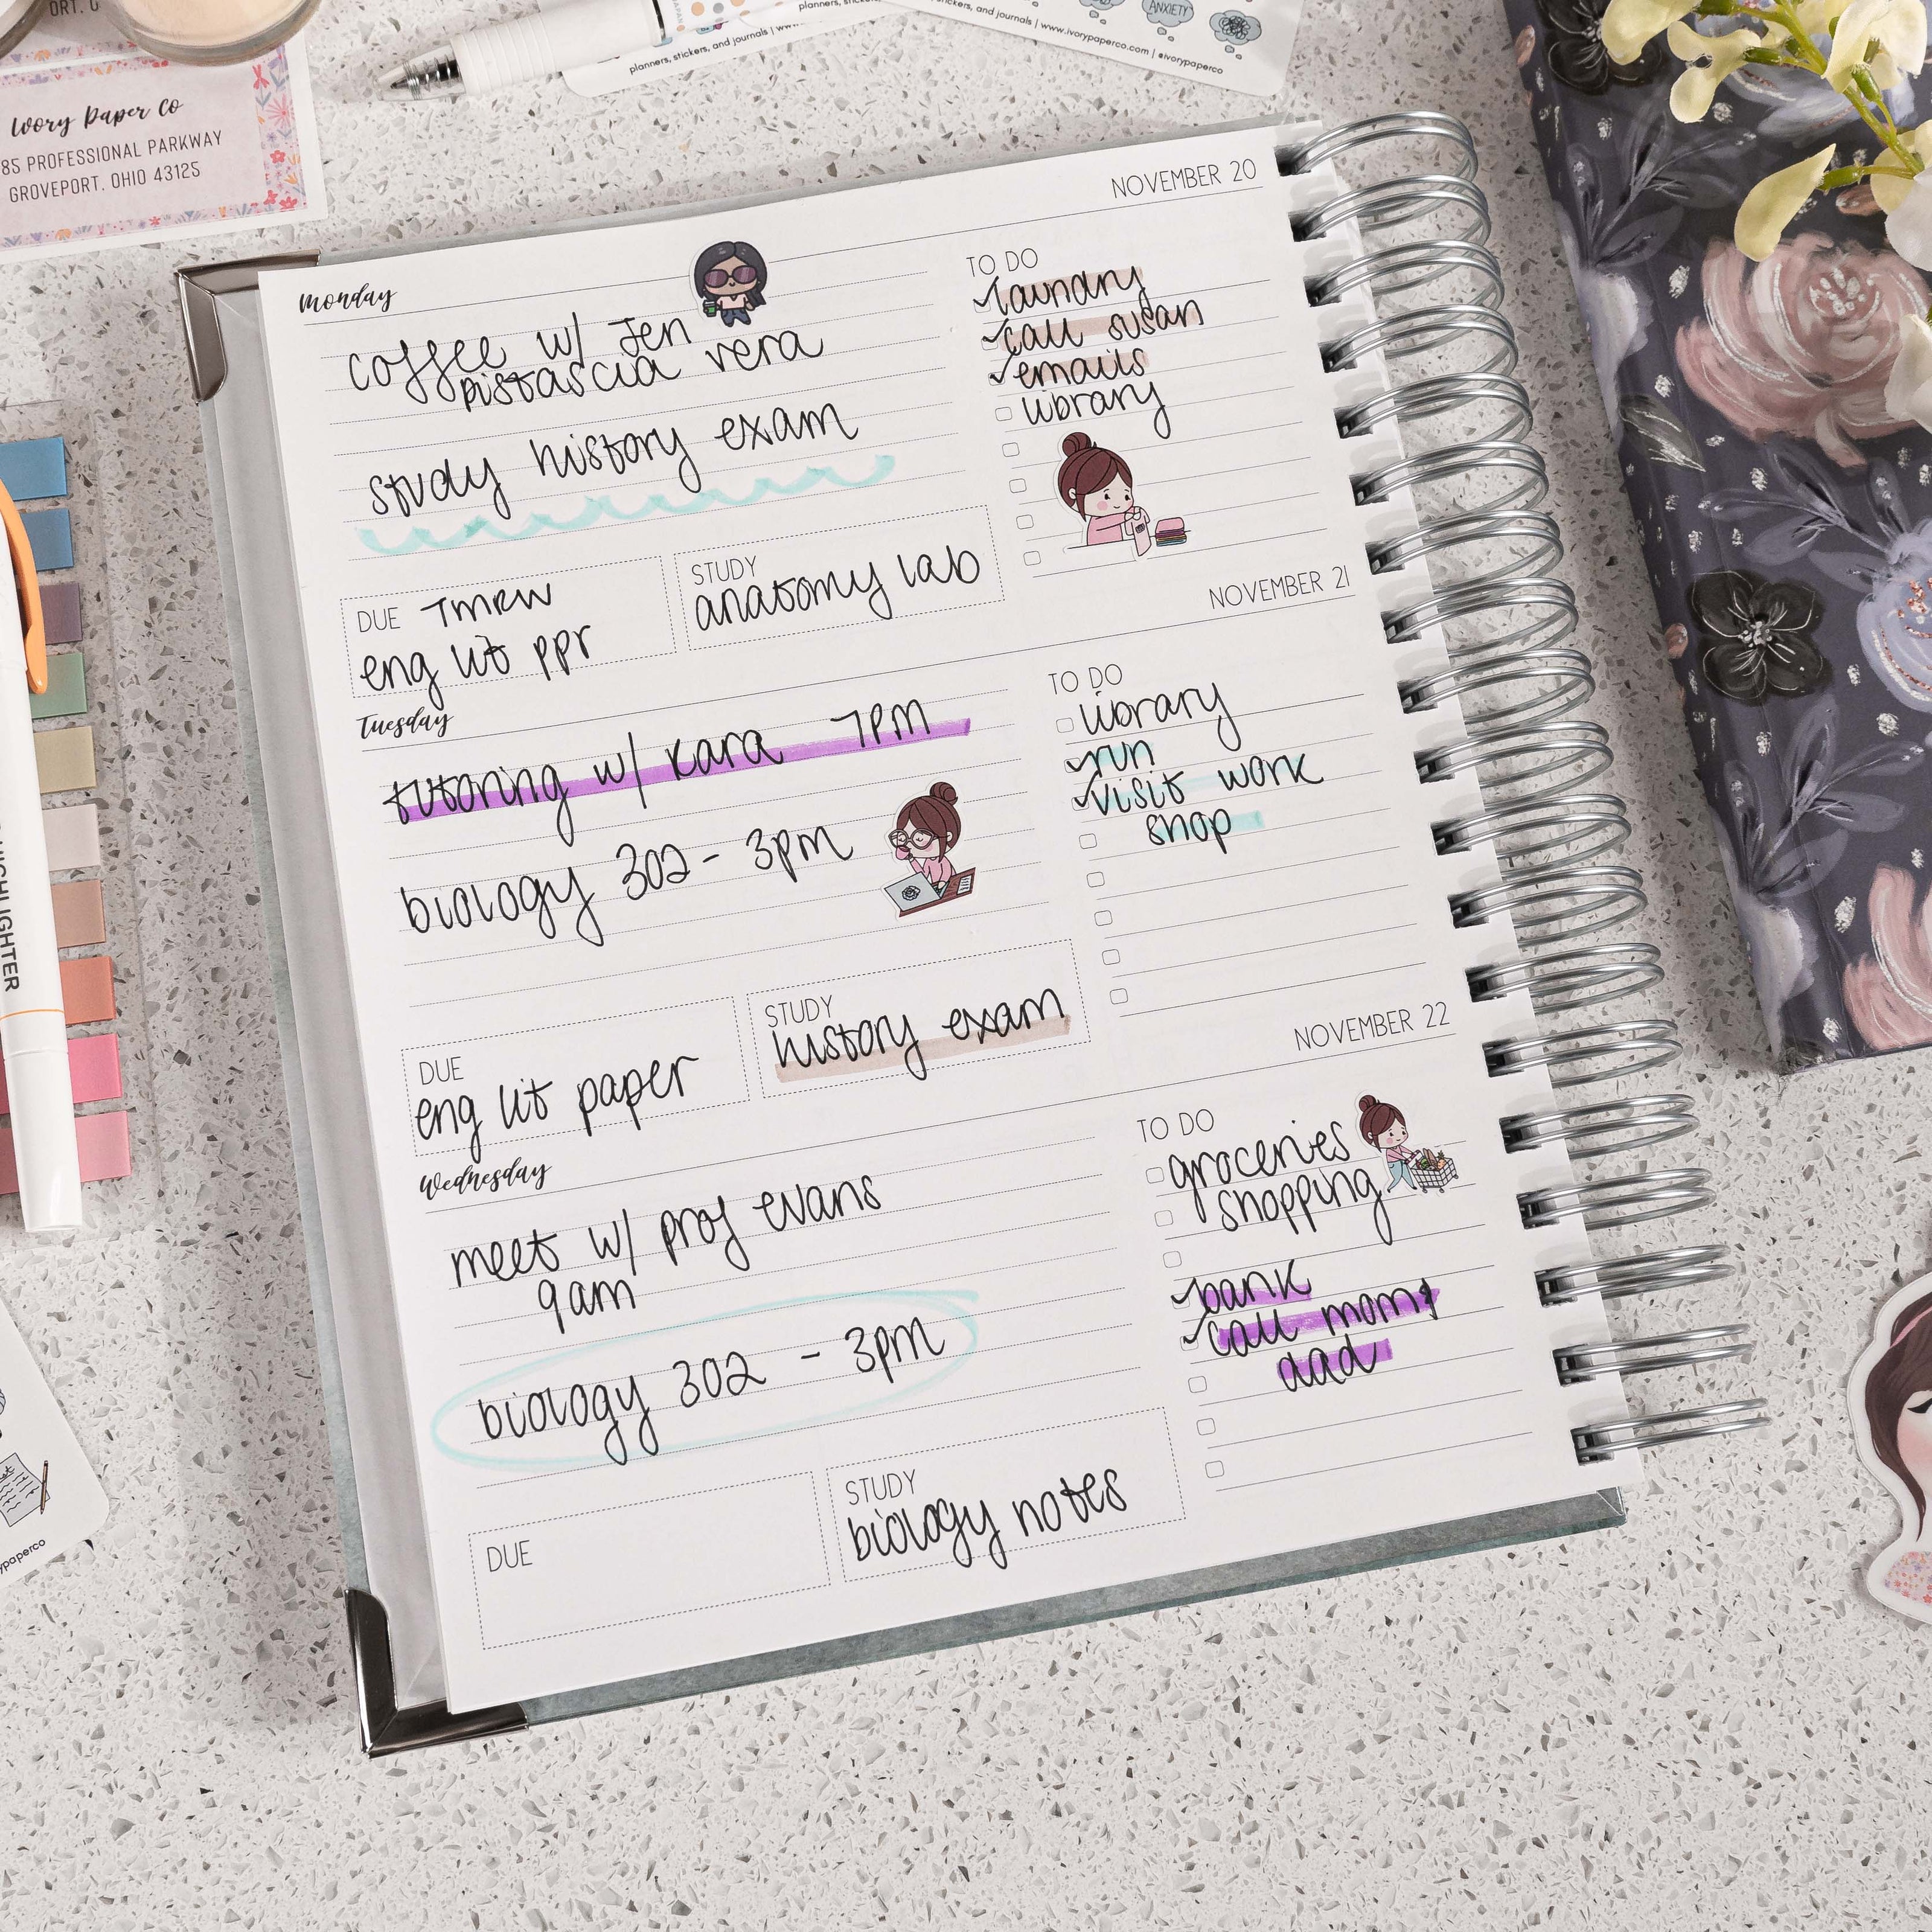 ORT, O
Ivory Paper Co
85 PROFESSIONAL PARKWAY
GROVEPORT, OHIO 43125
planners, stickers, and journals |
planners, stickers, and journals | www.ivorypaperco.com | @ivorypaperco
ANXIETY
HIGHLIGHTER
ypaperco
NOVEMBER 20
monday
coffee w/ Jen
pistascia vera
study history exam
TO DO
laundry
call susan
emails
library
DUE TMRW
eng lit ppr
STUDY
anatomy lab
NOVEMBER 21
Tuesday
tutoring w/ Kara 7PM
biology 302 - 3pm
TO DO
library
run
visit work
shop
DUE
eng lit paper
STUDY
history exam
NOVEMBER 22
Wednesday
meet w/ prof evans
9am
biology 302 - 3pm
TO DO
groceries
shopping
bank
call mom &
dad
DUE
STUDY
biology notes